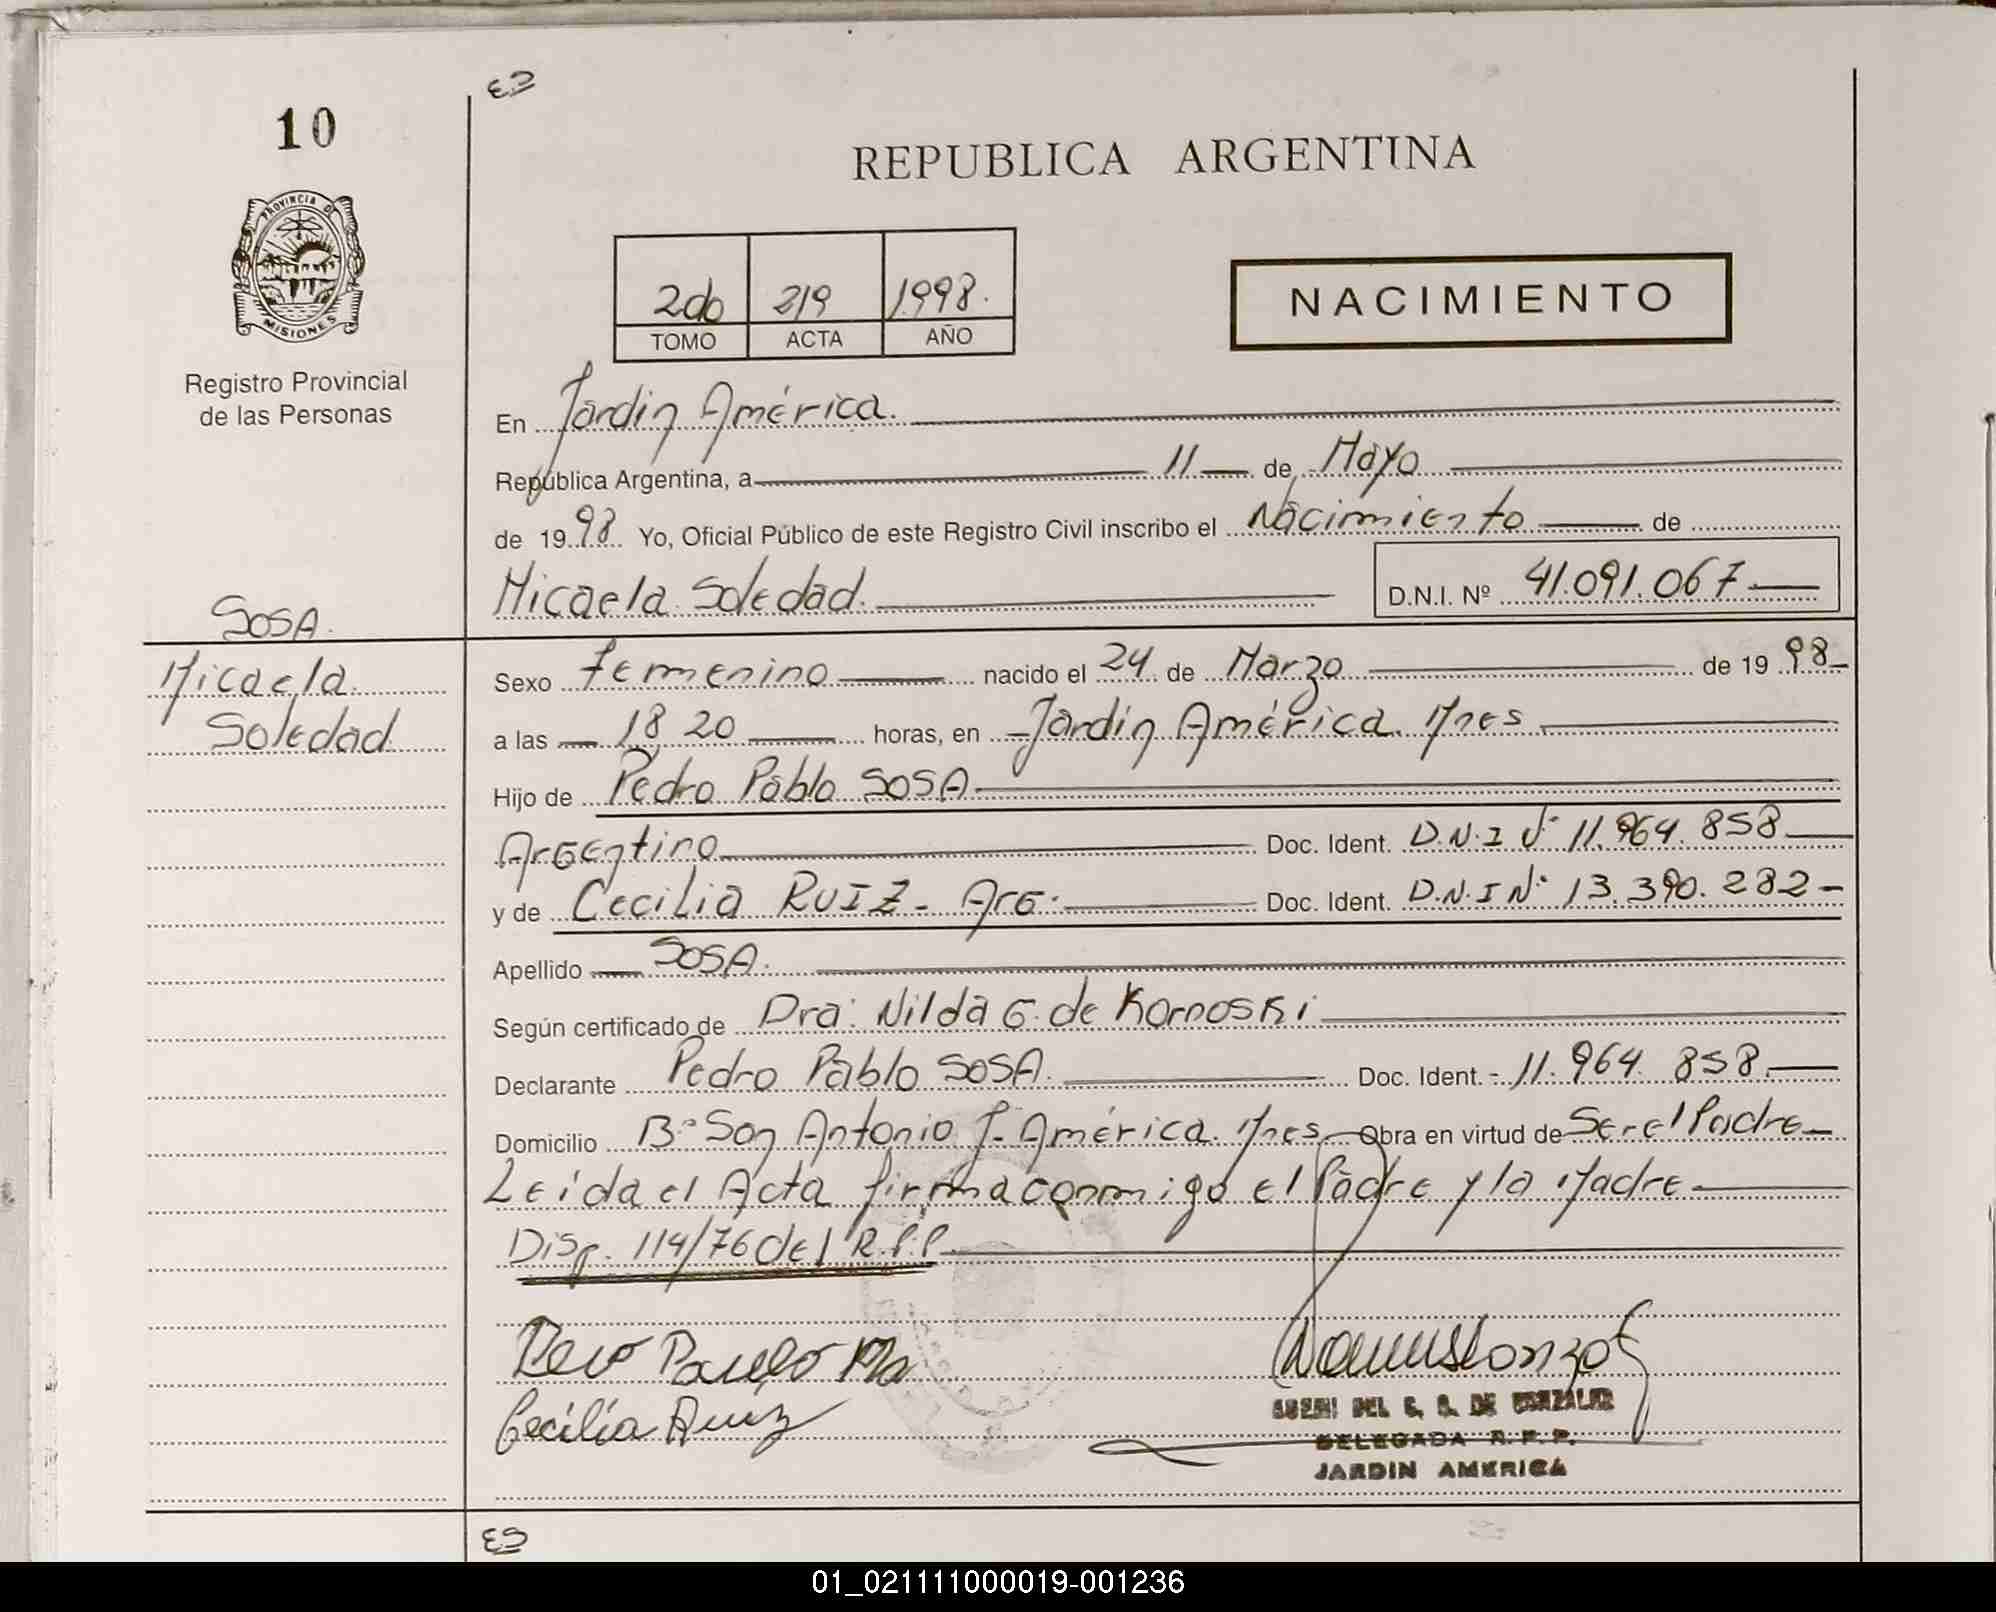 10
PROVINCIA DE
MISIONES
Registro Provincial
de las Personas
SOSA
Micaela
Soledad
REPUBLICA ARGENTINA
2do 219 1998.
TOMO ACTA AÑO
NACIMIENTO
En Jardin América.
República Argentina, a 11 de Mayo
de 1998 Yo, Oficial Público de este Registro Civil inscribo el Nacimiento de
Micaela Soledad. D.N.I. Nº 41.091.067
Sexo Femenino nacido el 24 de Marzo de 1998
a las 18 20 horas, en Jardin América. Mnes
Hijo de Pedro Pablo SOSA
Argentino Doc. Ident. D.N.I Nº 11.964.858
y de Cecilia RUIZ - Arg. Doc. Ident. D.N.I Nº 13.390.282
Apellido SOSA.
Según certificado de Dra: Nilda G. de Kornoski
Declarante Pedro Pablo SOSA. Doc. Ident. 11.964.858.
Domicilio Bº San Antonio J. América. Mnes Obra en virtud de Ser el Padre
Leida el Acta firma conmigo el Padre y la Madre
Disp. 114/76 del R.P.P.
Cecilia Ruiz
DEL C. S. DE GONZALEZ
DELEGADA R.P.P.
JARDIN AMERICA
01_021111000019-001236